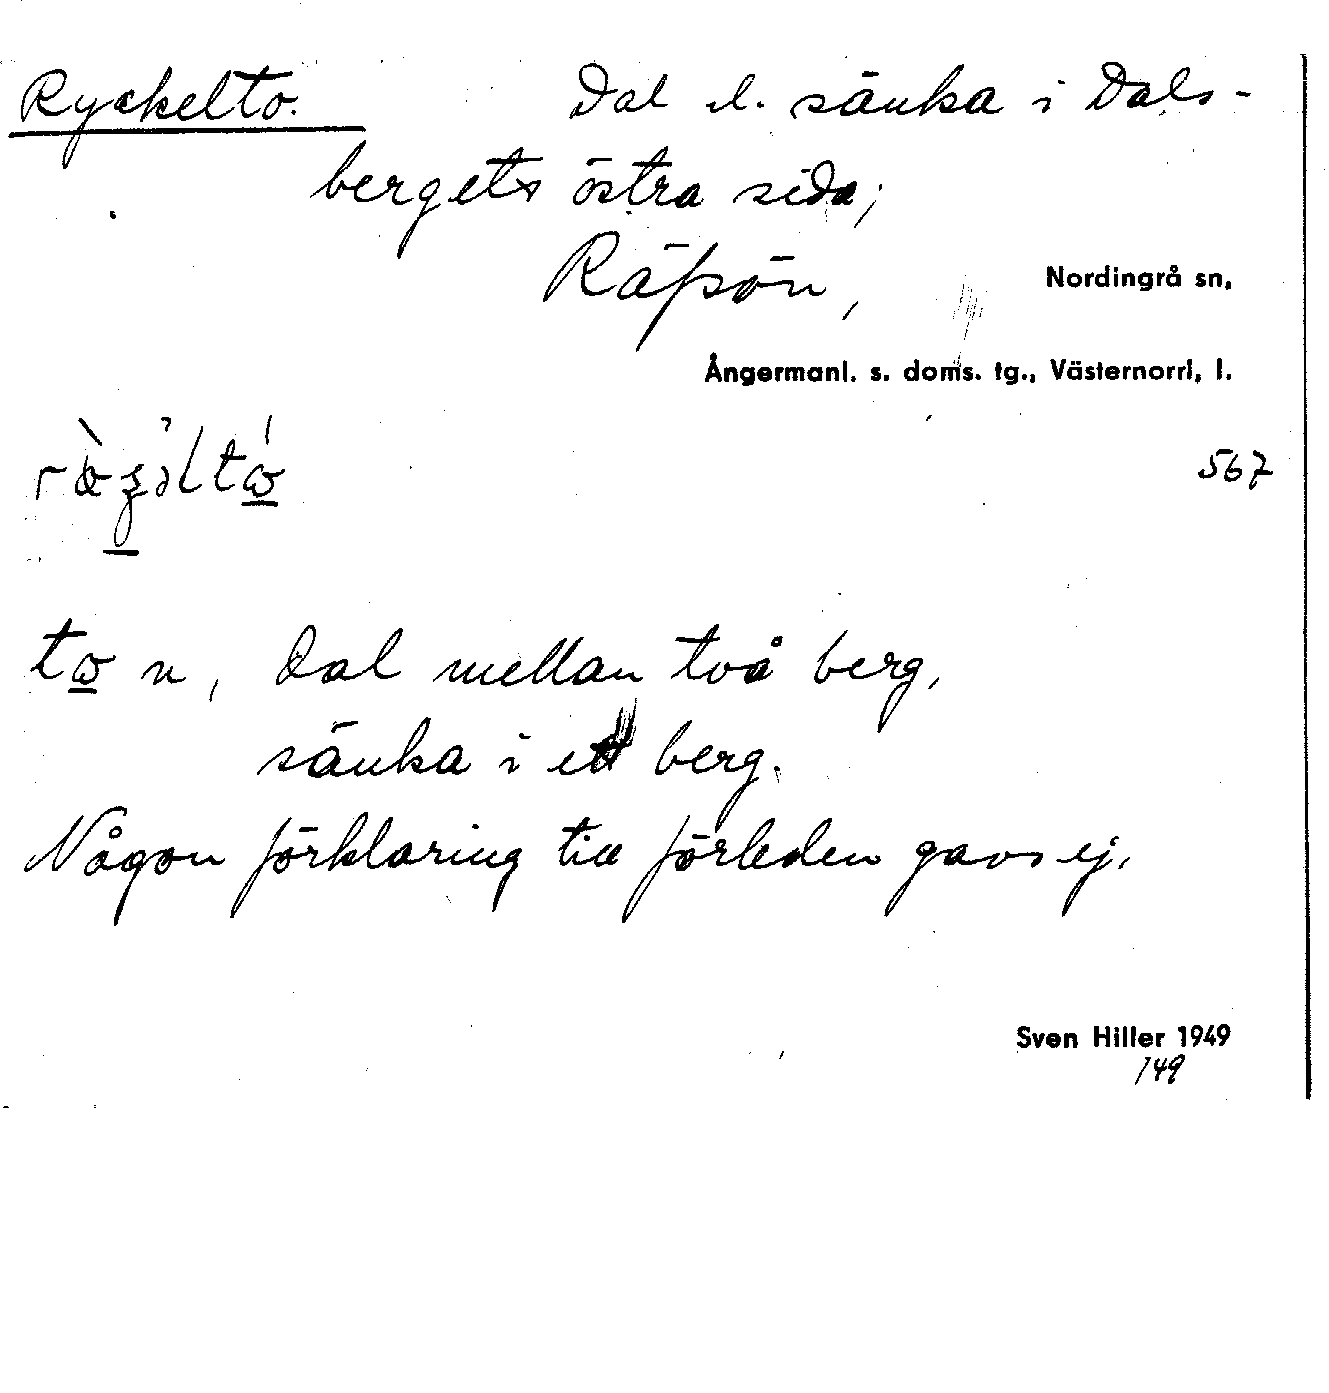 Ryckelto. Dal el. sänka i Dals-
bergets östra sida;
Räpsön, Nordingrå sn,
Ångermanl. s. doms. tg., Västernorrl, l.
567
to n, dal mellan två berg,
sänka i ett berg.
Någon förklaring till förleden gavs ej.
Sven Hiller 1949
149